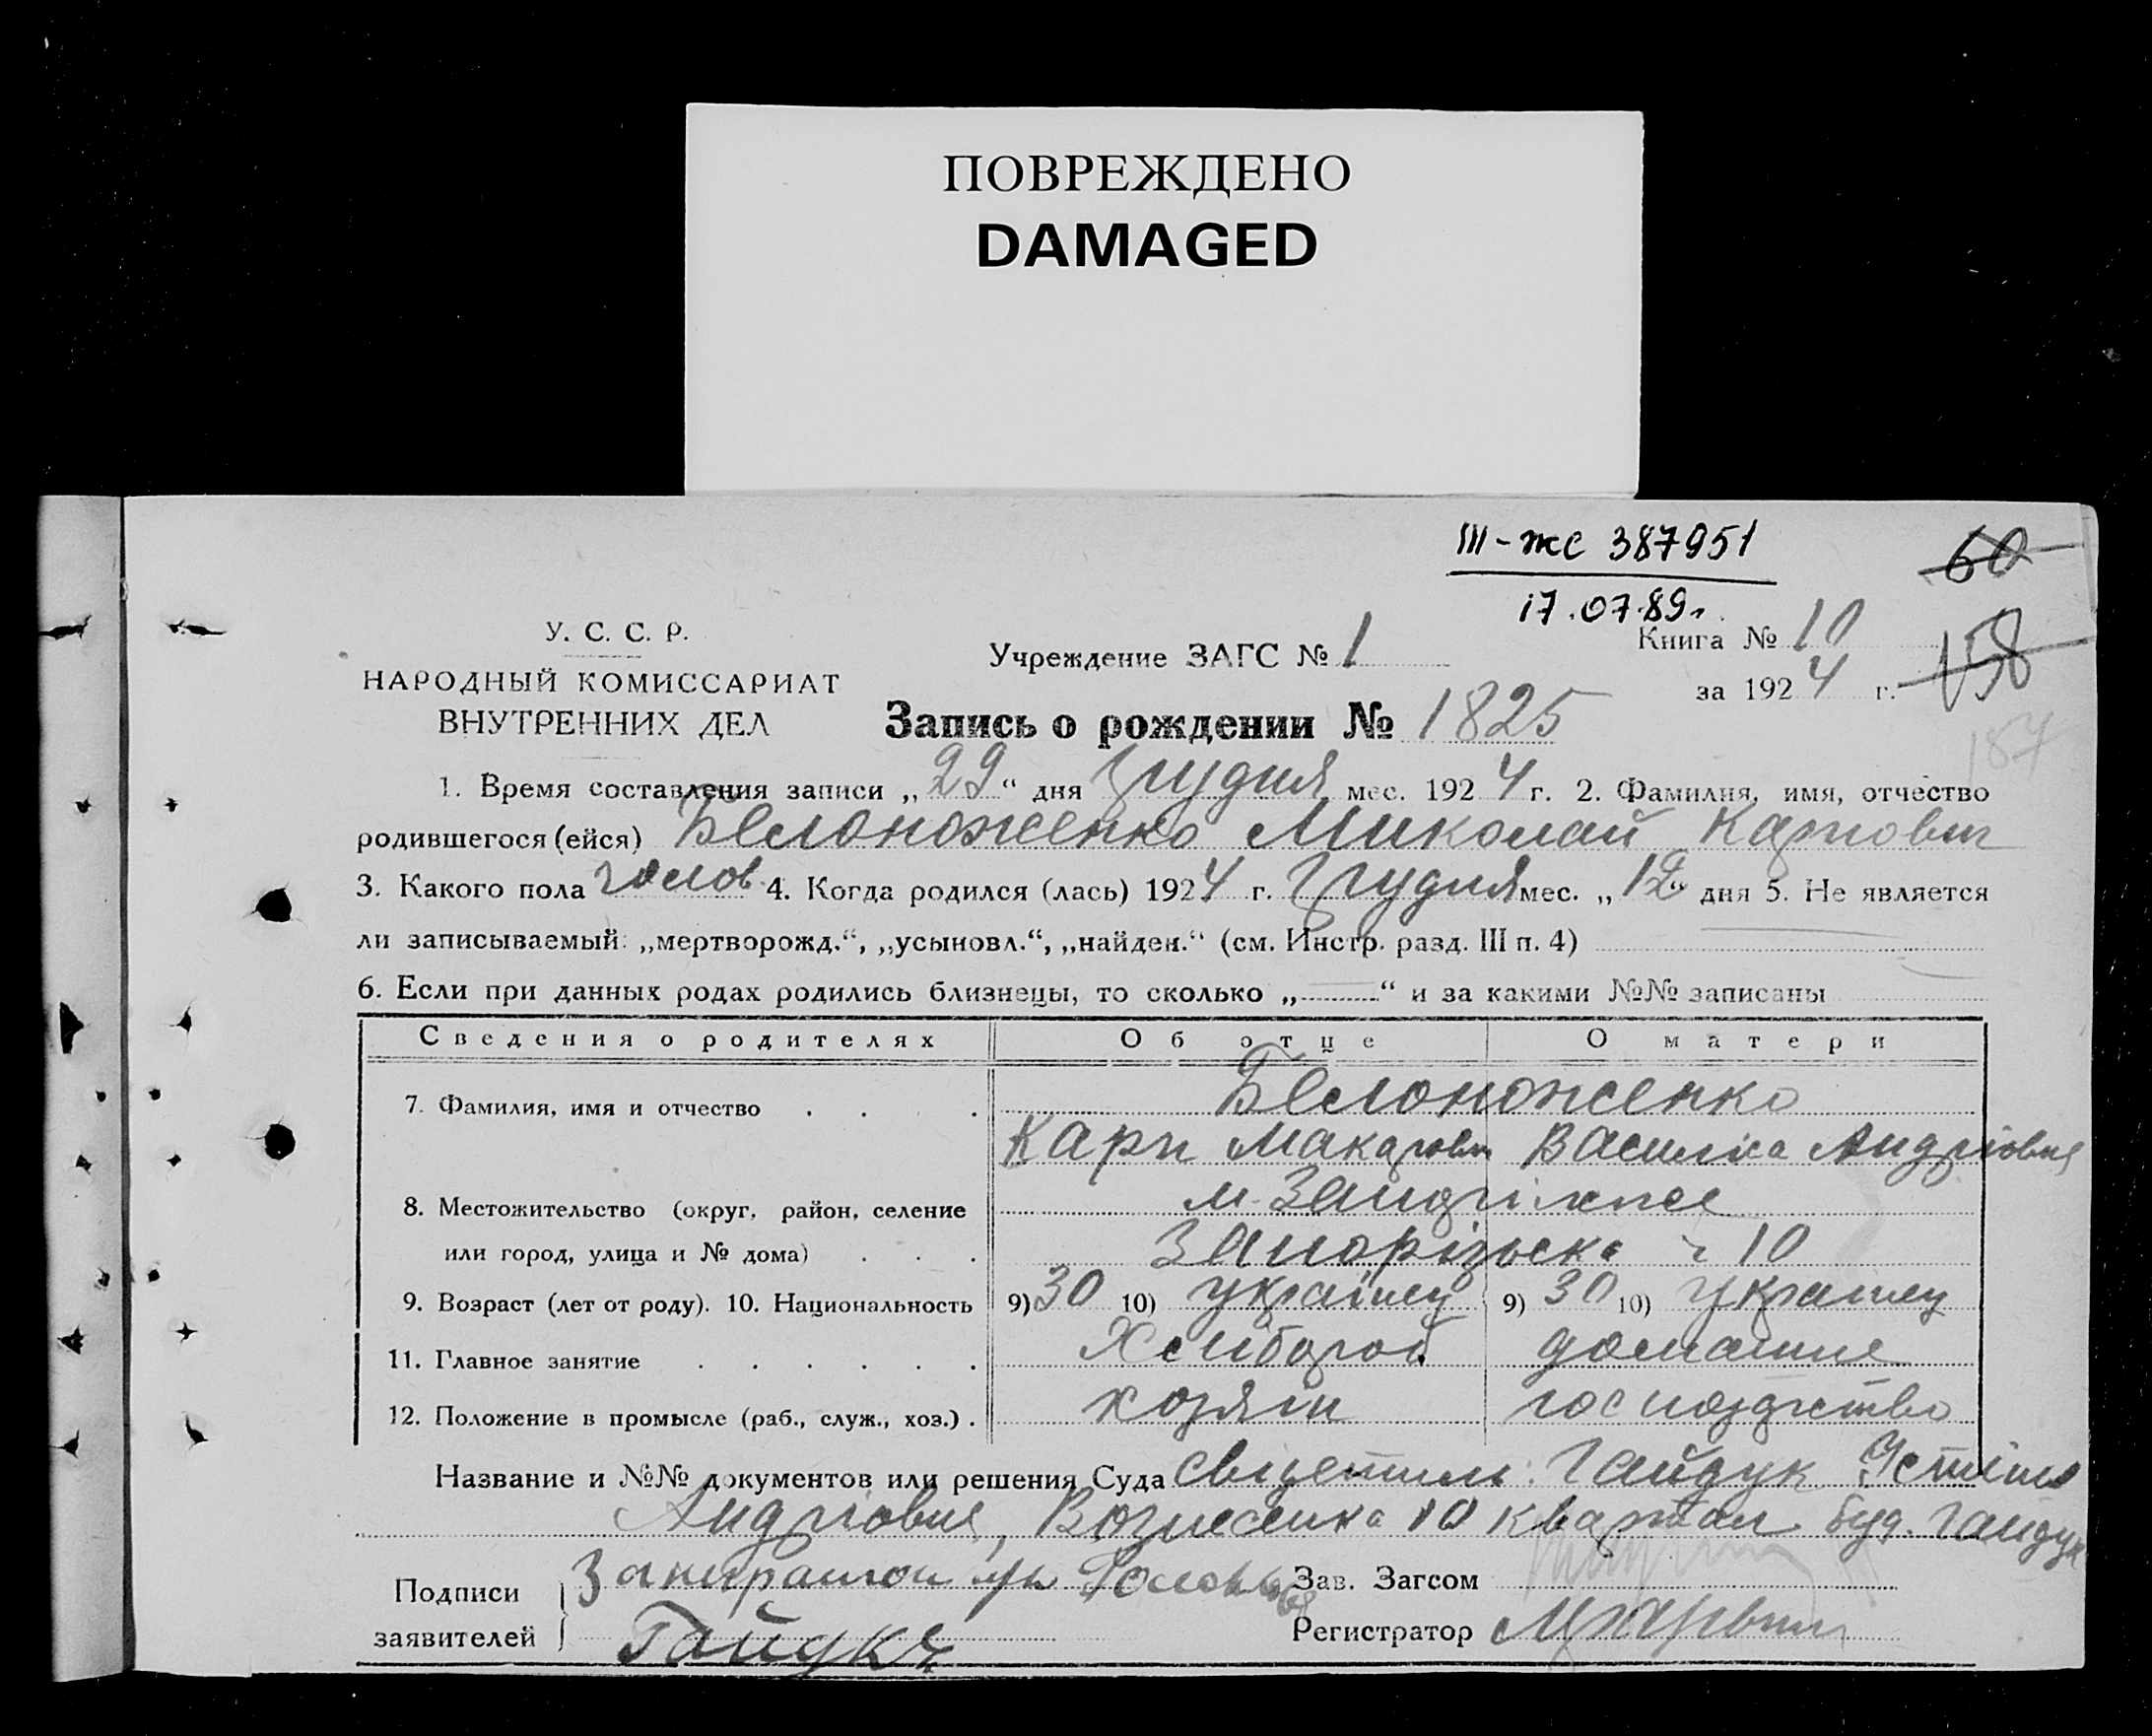 ПОВРЕЖДЕНО
DAMAGED
III-жс 387951
17.07.89г.
60
У. С. С. Р.
НАРОДНЫЙ КОМИССАРИАТ
ВНУТРЕННИХ ДЕЛ
Учреждение ЗАГС № 1
Книга № 10
за 1924 г.
158
187
Запись о рождении № 1825
1. Время составления записи „29“ дня Грудня мес. 1924 г. 2. Фамилия, имя, отчество
родившегося (ейся) Белоноженко Миколай Карпович
3. Какого пола голов. 4. Когда родился (лась) 1924 г. Грудня мес. „12“ дня 5. Не является
ли записываемый: „мертворожд.“, „усыновл.“, „найден.“ (см. Инстр. разд. III п. 4)
6. Если при данных родах родились близнецы, то сколько „—“ и за какими №№ записаны
Сведения о родителях Об отце О матери
7. Фамилия, имя и отчество Белоноженко
Карп Макарович Василиса Андріовна
8. Местожительство (округ, район, селение м. Запоріжжє
или город, улица и № дома) Запорізьска 10
9. Возраст (лет от роду). 10. Национальность 9) 30 10) українец 9) 30 10) українец
11. Главное занятие Хлібороб домашне
12. Положение в промысле (раб., служ., хоз.) хозяін господарство
Название и №№ документов или решения Суда Гайдук
Андріовна, Вознесенка 10 квартал буд. Гайдук
Подписи
заявителей
Зав. Загсом
Регистратор